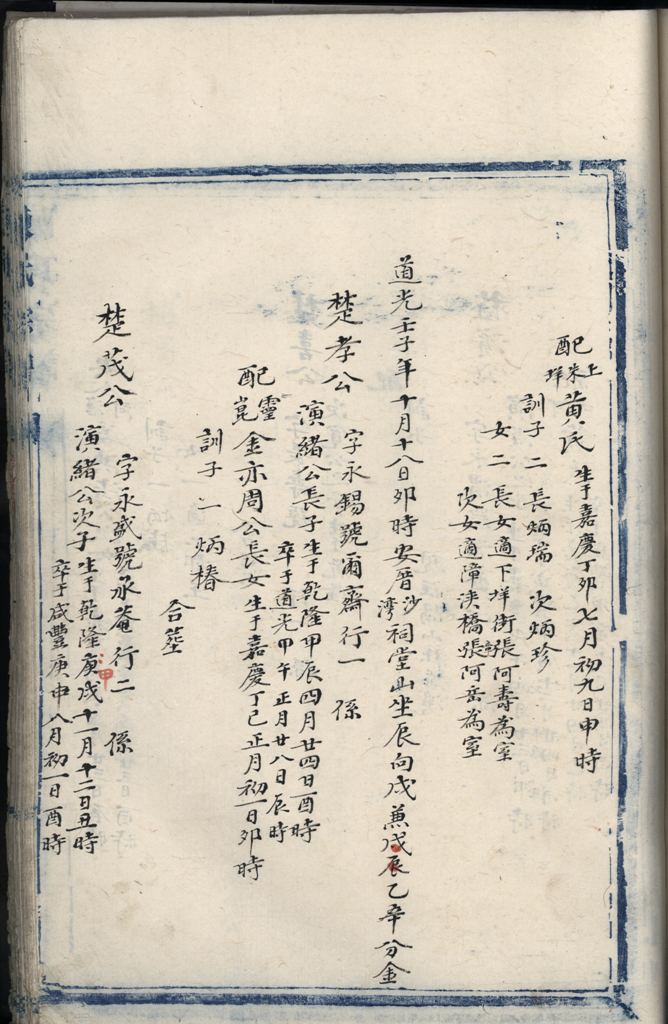 配上米垟黄氏 生于嘉慶丁卯七月初九日申時
訓子二 長炳瑞 次炳珍
女二 長女適下垟街張阿壽為室
次女適漳浹橋張阿岳為室
道光壬子年十月十八日卯時安厝沙湾祠堂山坐辰向戌兼戌辰乙辛分金
楚孝公
字永錫號爾齋行一 係
演緒公長子生于乾隆甲辰四月廿四日酉時
卒于道光甲午正月廿八日辰時
配靈崑金亦周公長女生于嘉慶丁巳正月初一日卯時
訓子一炳椿
合塟
楚茂公
字永盛號永菴行二 係
演緒公次子生于乾隆庚戌十一月十二日丑時
甲
卒于咸豐庚申八月初一日酉時